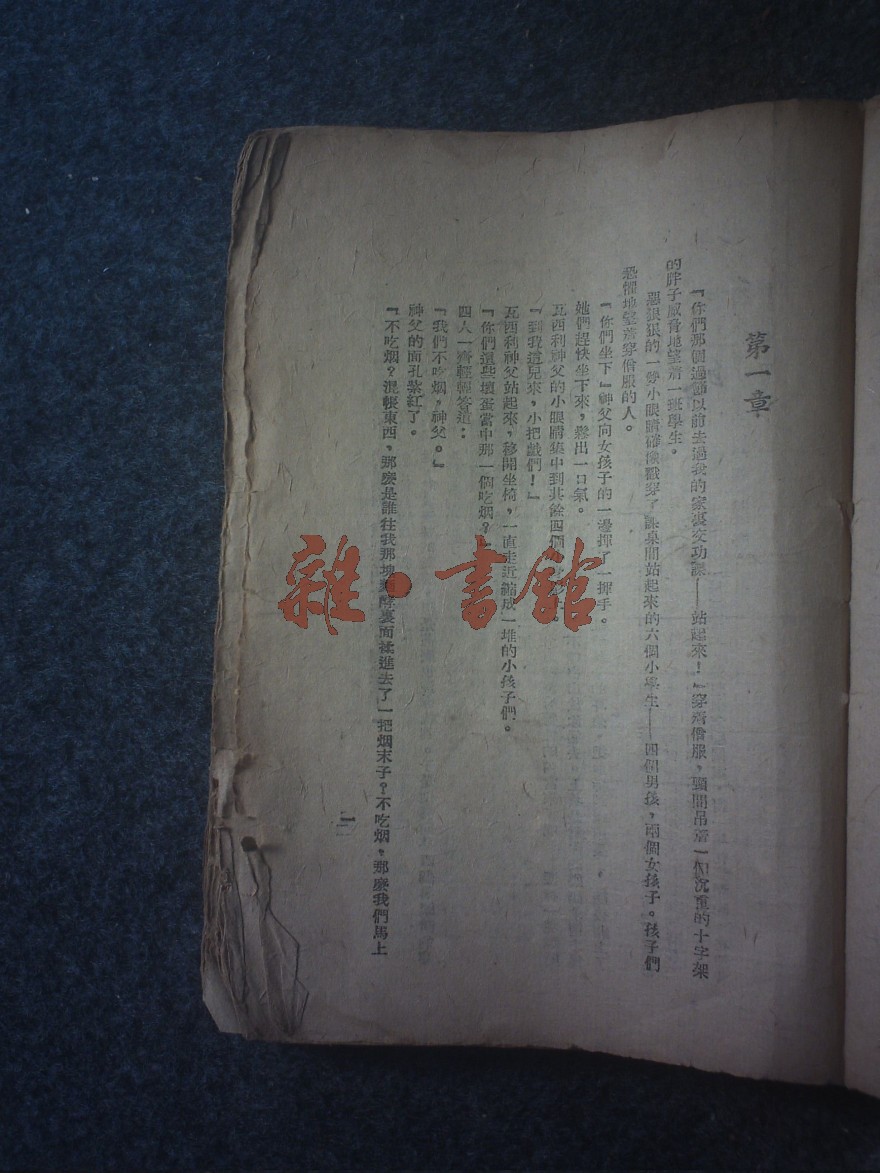 第一章
『你們那個過節以前去過我的家裏交功課——站起來！』穿着僧服，頸間吊着一個沉重的十字架
的胖子威脅地望着一班學生。
惡狠狠的一雙小眼睛確像戳穿了課桌間站起來的六個小學生——四個男孩，兩個女孩子。孩子們
恐懼地望着穿僧服的人。
『你們坐下』神父向女孩子的一邊揮了一揮手。
她們趕快坐下來，鬆出一口氣。
瓦西利神父的小眼睛集中到其餘四個
『到我這兒來，小把戲們！』
瓦西利神父站起來，移開坐椅，一直走近縮成一堆的小孩子們。
『你們這些壞蛋當中那一個吃烟？
四人一齊輕輕答道：
『我們不吃烟，神父。』
神父的面孔紫紅了。
『不吃烟？混帳東西，那麼是誰往我那塊 酵裏面揉進去了一把烟末子？不吃烟，那麼我們馬上
雜·書館